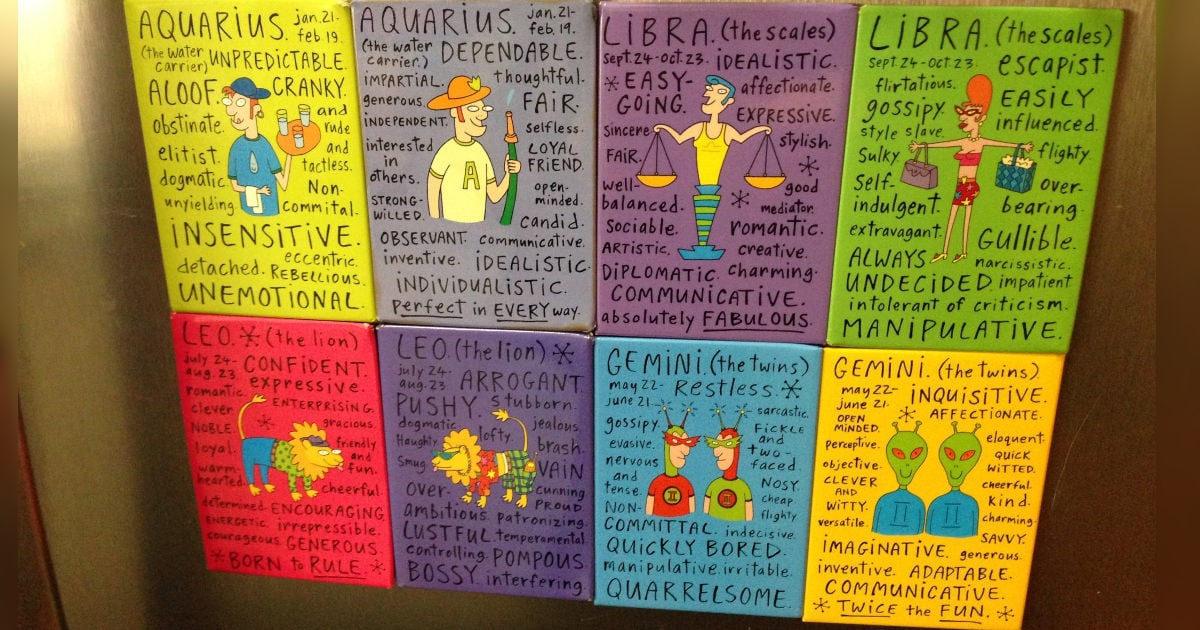 AQUARIUS. jan.21-
feb 19.
(the water
carrier)
UNPREDICTABLE.
ALOOF.
CRANKY.
and
rude
and
tactless.
Obstinate.
elitist.
dogmatic.
unyielding.
Non-
Commital.
iNSENSiTiVE.
eccentric.
detached. REBELLIOUS.
UNEMOTIONAL.
AQUARIUS. jan.21-
feb.19.
(the water
carrier.)
DEPENDABLE.
IMPARTIAL.
thoughtful.
generous.
FAiR.
INDEPENDENT.
selfless.
interested
in
others.
LOYAL
FRIEND.
STRONG-
WILLED.
open-
minded.
candid.
A
OBSERVANT. communicative.
inventive. iDEALISTIC.
iNDiViDUALISTIC.
Perfect in EVERY way.
LiBRA. (the scales)
Sept.24-Oct.23. iDEALISTIC.
* EASY-
GOING.
affectionate.
EXPRESSIVE.
Sincere.
stylish.
FAIR.
*
well-
balanced.
good
mediator.
*
Sociable.
romantic.
ARTISTIC.
creative.
DiPLOMATIC. charming.
COMMUNICATIVE.
absolutely FABULOUS.
LiBRA. (the scales)
Sept.24-Oct.23. escapist.
flirtatious.
EASILY
influenced.
gossipy.
style slave.
flighty.
Sulky.
Self-
indulgent.
over-
bearing.
extravagant.
Gullible.
ALWAYS
UNDECIDED.
narcissistic.
impatient
intolerant of criticism.
MANIPULATIVE.
LEO. * (the lion)
july 24-
aug. 23
CONFiDENT.
expressive.
romantic.
ENTERPRISING.
clever.
*
gracious.
NOBLE.
loyal.
friendly
and
fun.
warm-
hearted.
cheerful.
determined. ENCOURAGING.
ENERGETIC. irrepressible.
courageous GENEROUS.
* BORN to RULE. *
LEO. (the lion) *
july 24-
aug. 23
ARROGANT
PUSHY. Stubborn.
dogmatic.
lofty.
jealous.
Haughty.
brash.
Smug.
VAIN
cunning
PROUD.
Over-
ambitious. patronizing.
LUSTFUL. temperamental.
controlling. POMPOUS.
BOSSY. interfering.
GEMiNi. (the twins)
may 22-
june 21.
Restless. *
sarcastic.
gossipy.
FiCKLE
and
two-
faced.
evasive.
nervous
and
tense.
NOSY.
cheap.
flighty.
II
II
NON-
COMMITTAL. indecisive.
QUICKLY BORED.
manipulative. irritable.
QUARRELSOME.
GEMiNi. (the twins)
may 22-
june 21.
iNQUISITIVE.
* AFFECTIONATE.
OPEN
MINDED.
perceptive.
eloquent.
QUICK
WITTED.
objective.
cheerful.
CLEVER
AND
WITTY.
kind.
charming.
versatile.
SAVVY.
II
II
iMAGINATIVE. generous.
inventive. ADAPTABLE.
COMMUNICATIVE.
* TWICE the FUN. *